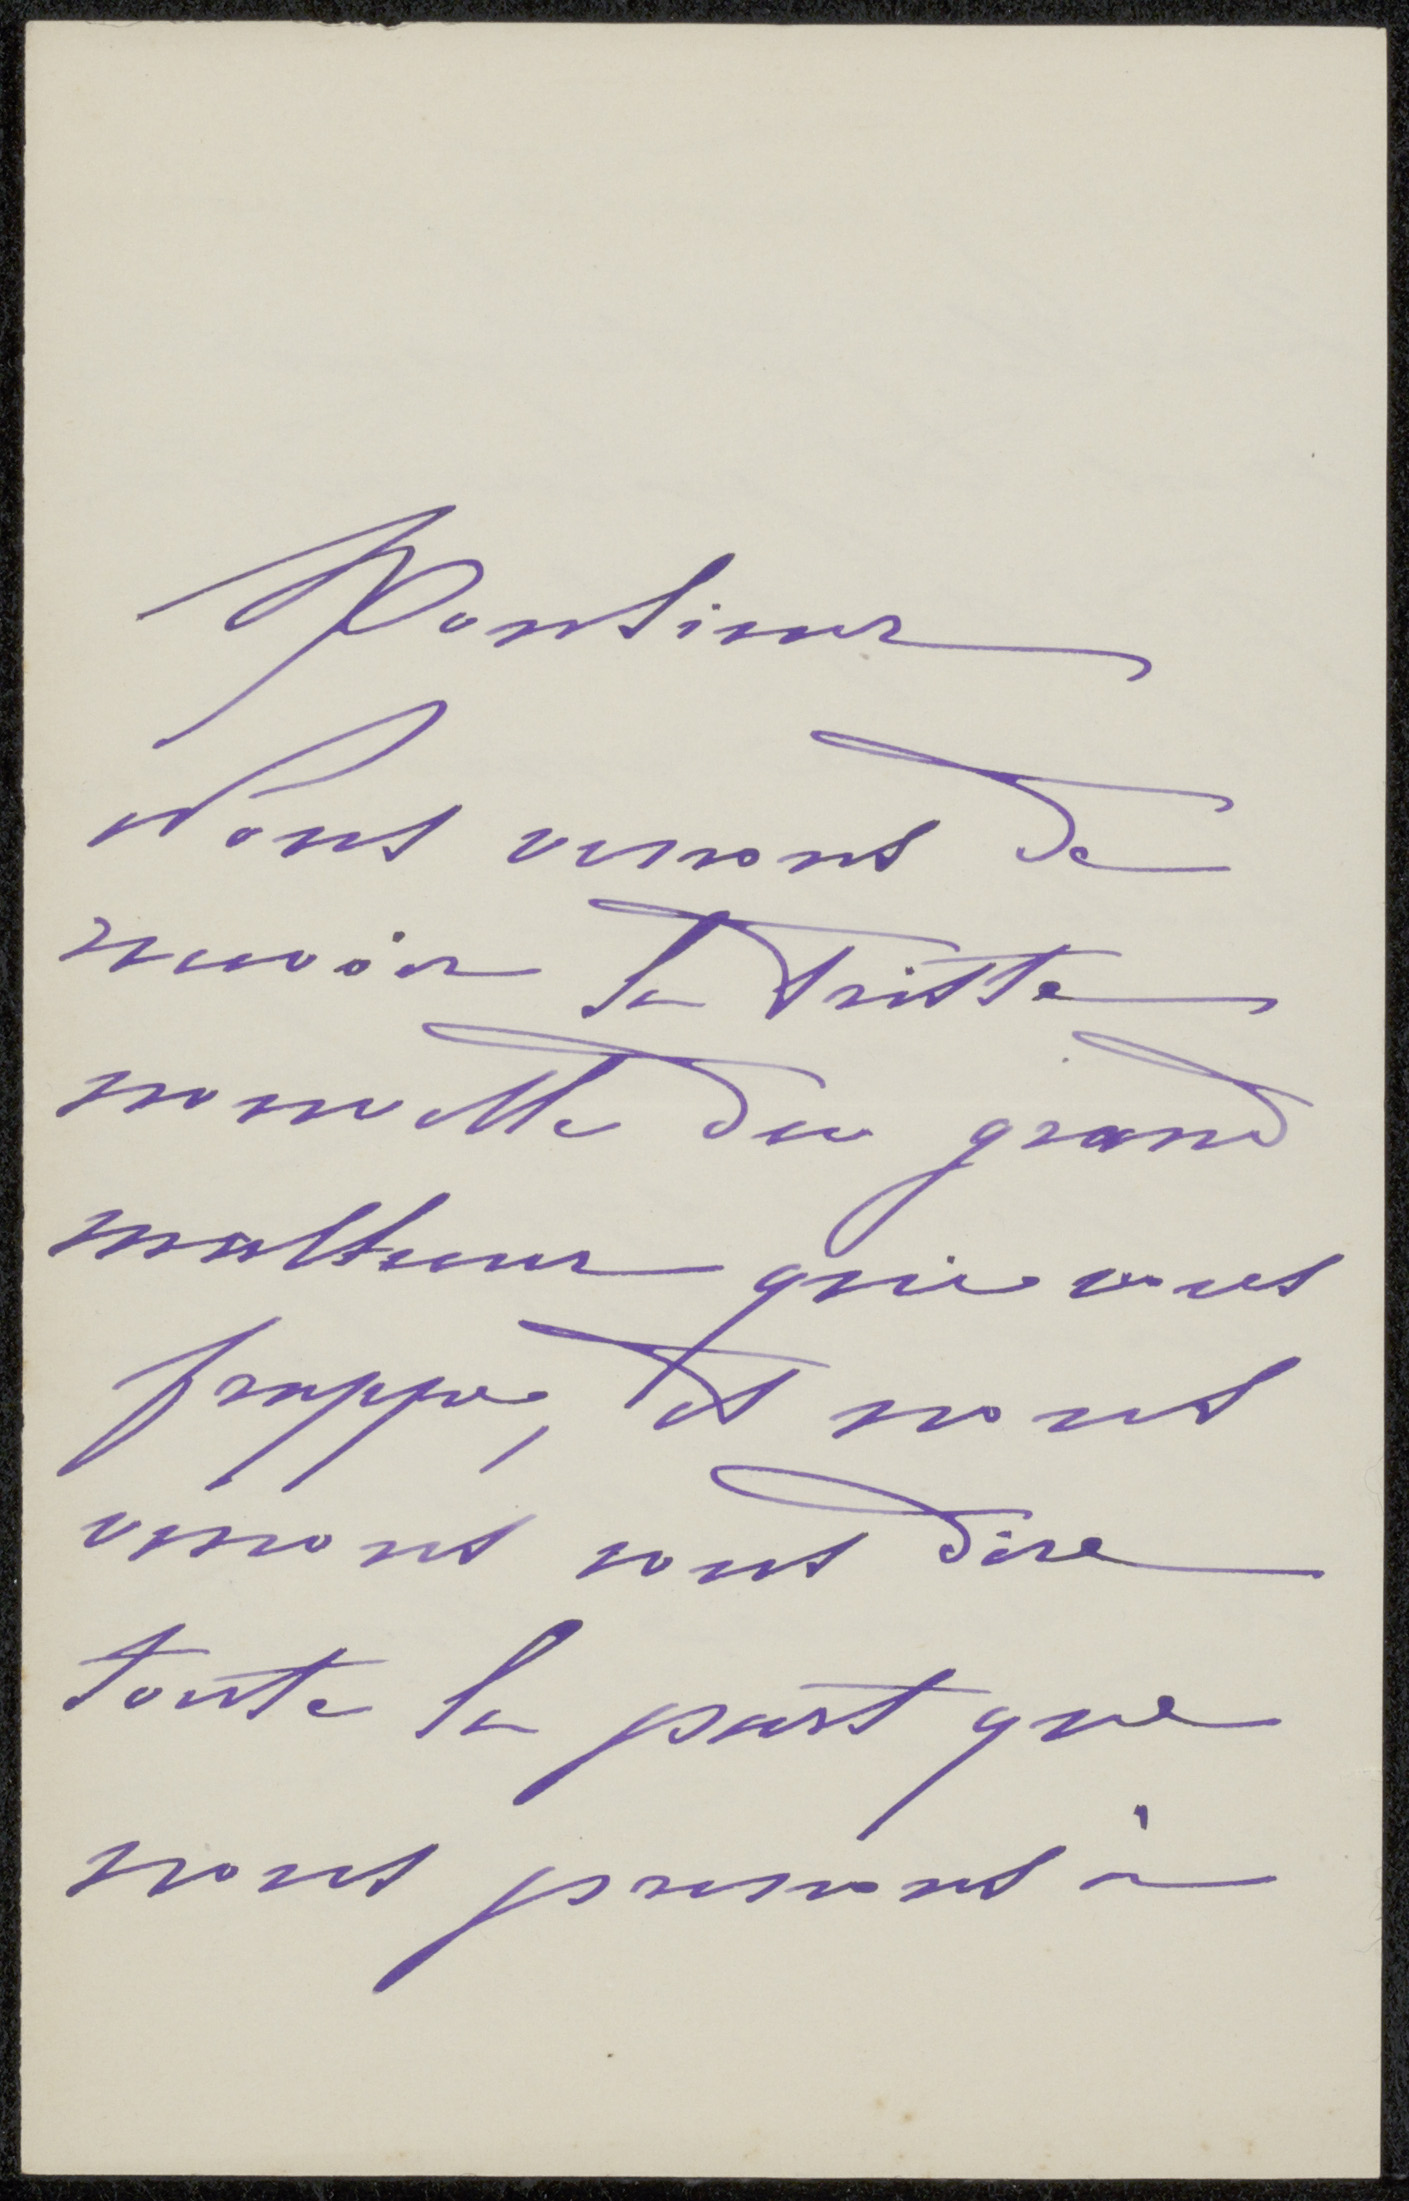 Monsieur
Nous venons de
recevoir la triste
nouvelle du grand
malheur qui vous
frappe, et nous
venons vous dire
toute la part que
nous prenons à